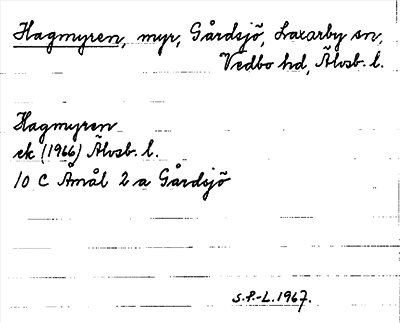 Hagmyren, myr, Gårdsjö, Laxarby sn,
Vedbo hd, Älvsb. l.
Hagmyren
ek (1966) Älvsb. l.
10 C Åmål 2 a Gårdsjö
S.P.-L. 1967.